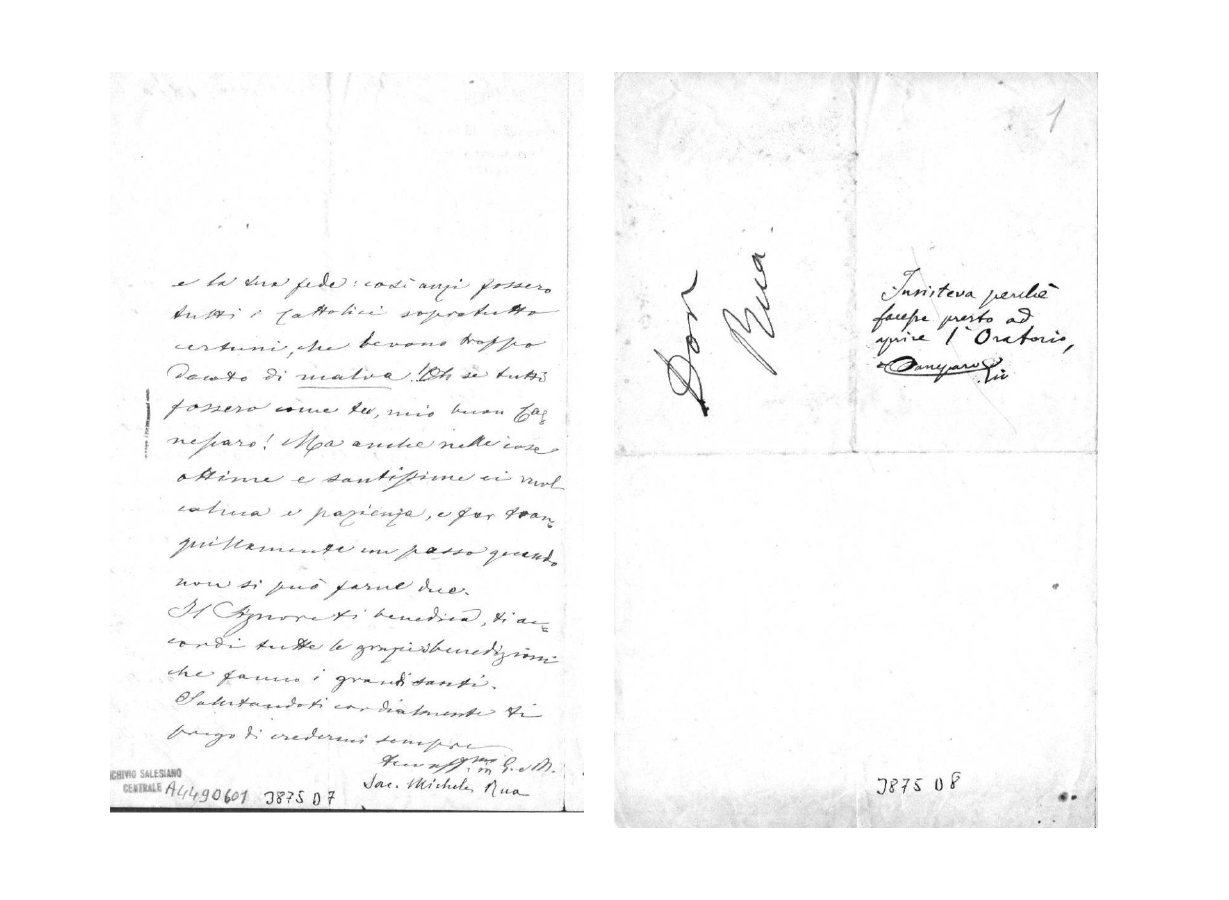 e la tua fede: così anzi fossero
tutti i Cattolici sopratutto
certuni, che bevono troppo
Decoto di malva! Oh se tutti
fossero come te, mio buon Cag
neparo! Ma anche nelle cose
ottime e santissime ci vuol
calma e pazienza, e far tran=
quillamente un passo quando
non si può farne due.
Il Signore ti benedica, ti ac=
cordi tutte le grazie e benedizioni
che fanno i grandi santi.
Salutandoti cordialmente ti
prego di credermi sempre
G. e M.
Sac. Michele Rua
ARCHIVIO SALESIANO
CENTRALE A4490601 3875 D7
1
Don
Rua.
Insisteva perchè
facesse presto ad
aprire l'Oratorio,
3875 D8